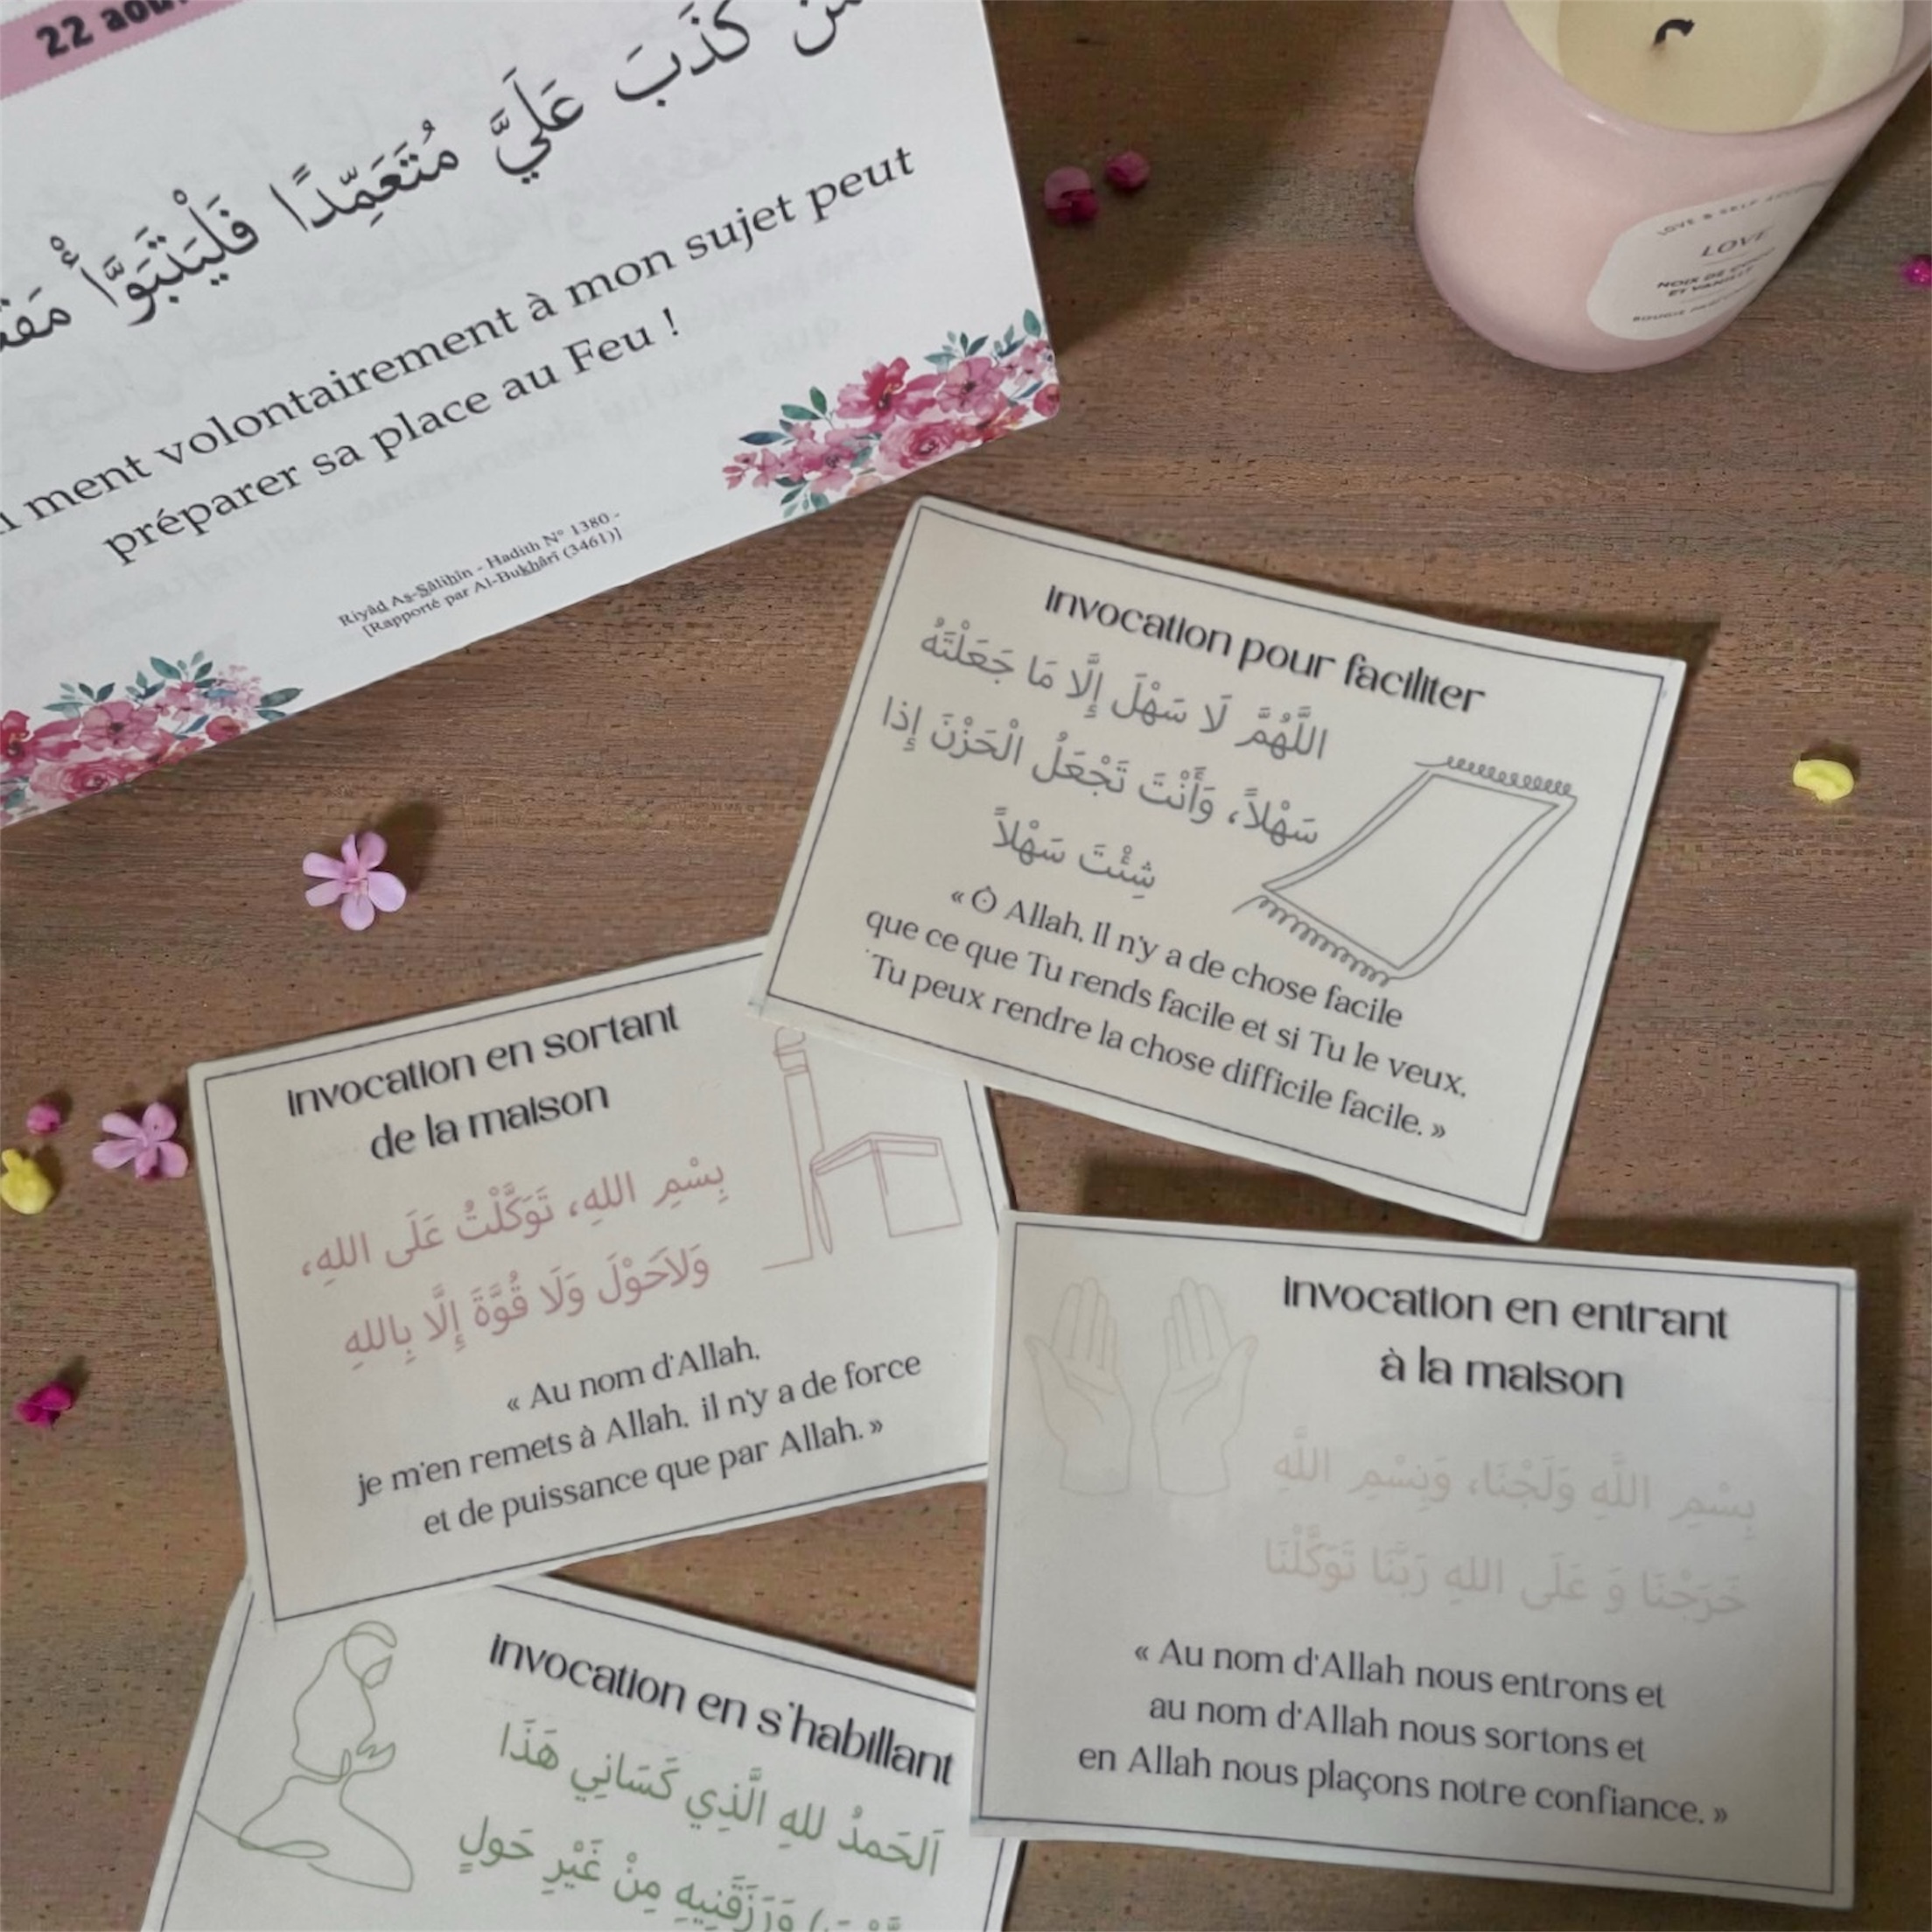 22 août
مَنْ كَذَبَ عَلَيَّ مُتَعَمِّدًا فَلْيَتَبَوَّأْ
ment volontairement à mon sujet peut
préparer sa place au Feu !
Riyâd As-Sâlihîn - Hadith N° 1380 -
[Rapporté par Al-Bukhârî (3461)]
LOVE
NOIX DE
ET VANILLE
BOUGIE
Invocation pour faciliter
اللَّهُمَّ لَا سَهْلَ إِلَّا مَا جَعَلْتَهُ
سَهْلاً، وَأَنْتَ تَجْعَلُ الْحَزْنَ إِذا
شِئْتَ سَهْلاً
« Ô Allah, Il n'y a de chose facile
que ce que Tu rends facile et si Tu le veux,
Tu peux rendre la chose difficile facile. »
Invocation en sortant
de la maison
بِسْمِ اللهِ، تَوَكَّلْتُ عَلَى اللهِ،
وَلاَحَوْلَ وَلَا قُوَّةَ إِلَّا بِاللهِ
« Au nom d'Allah,
je m'en remets à Allah, il n'y a de force
et de puissance que par Allah. »
Invocation en entrant
à la maison
بِسْمِ اللَّهِ وَلَجْنَا، وَبِسْمِ اللَّهِ
خَرَجْنَا وَ عَلَى اللهِ رَبِّنَا تَوَكَّلْنَا
« Au nom d'Allah nous entrons et
au nom d'Allah nous sortons et
en Allah nous plaçons notre confiance. »
Invocation en s'habillant
اَلحَمدُ للهِ الَّذِي كَسَانِي هَذَا
وَرَزَقَنِيهِ مِنْ غَيْرِ حَولٍ